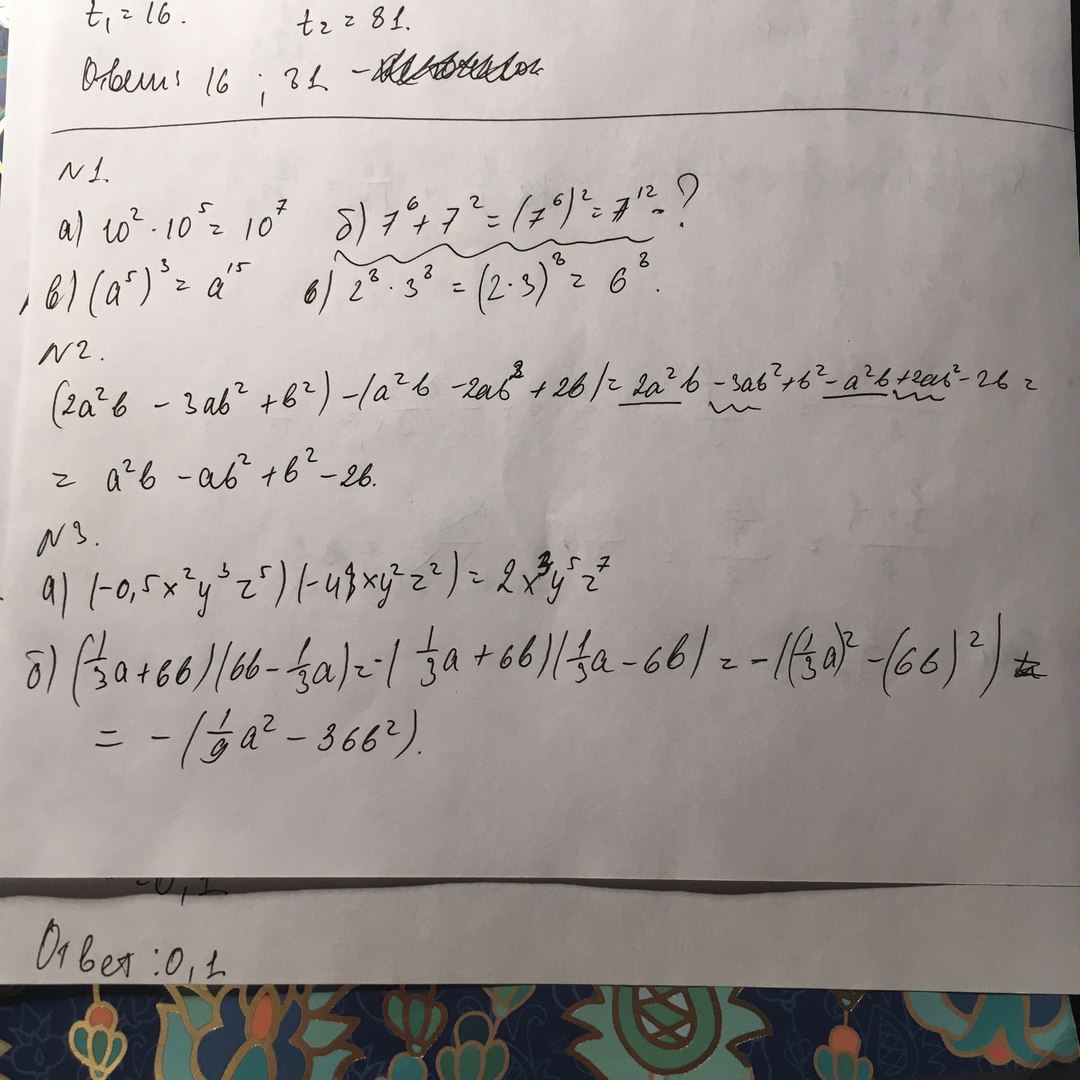 t₁ = 16. t₂ = 81.
Ответ: 16 ; 81 -
N1.
а) 10² · 10⁵ = 10⁷ б) 7⁶ + 7² = (7⁶)² = 7¹² - ?
в) (a⁵)³ = a¹⁵ в) 2⁸ · 3⁸ = (2·3)⁸ = 6⁸.
N2.
(2a²b - 3ab² + b²) - (a²b - 2ab² + 2b) = 2a²b - 3ab² + b² - a²b + 2ab² - 2b =
= a²b - ab² + b² - 2b.
N3.
а) (-0,5x²y³z⁵)(-4xy²z²) = 2x³y⁵z⁷
б) (1/3a + 6b)(6b - 1/3a) = -(1/3a + 6b)(1/3a - 6b) = -((1/3a)² - (6b)²)
= -(1/9a² - 36b²).
-0,1
Ответ: 0,1